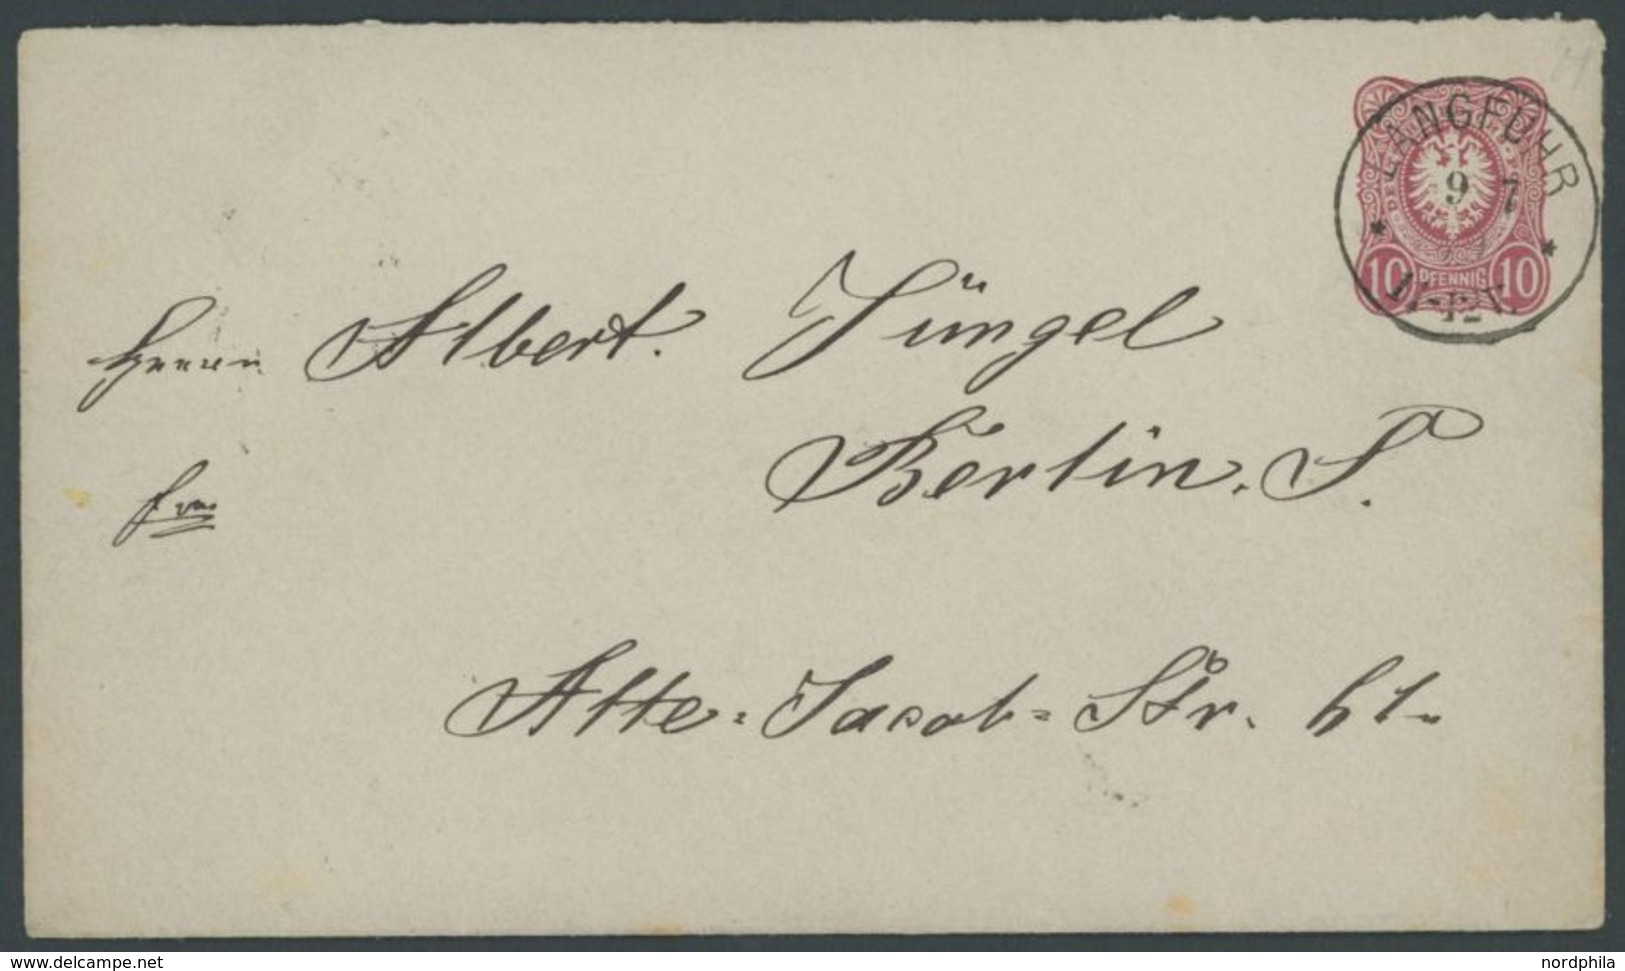 LANGFUHR
9 7
10 PFENNIG 10
Herrn Albert Jüngel
Berlin. S.
frei
Alte=Jacob=Str.
www.delcampe.net
nordphila